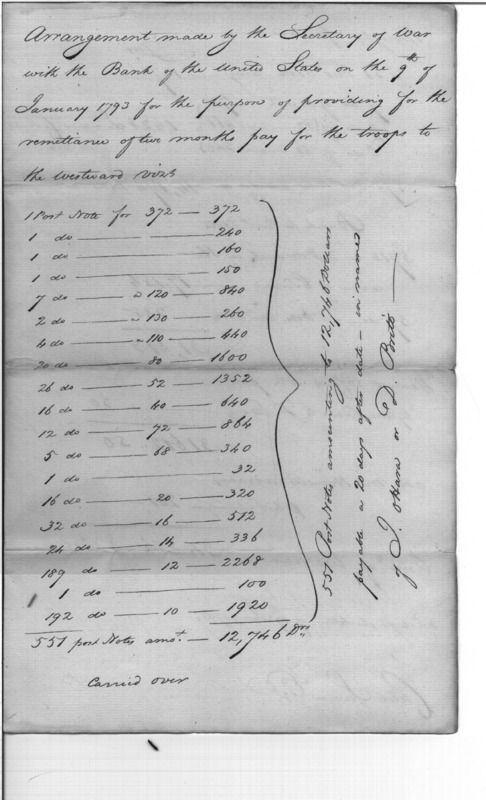 Arrangement made by the Secretary of War
with the Bank of the United States on the 9th of
January 1793 for the purpose of providing for the
remittance of two months pay for the troops to
the westward vizt
1 Post Note for 372 — 372
1 do — 240
1 do — 160
1 do — 150
7 do — a 120 — 840
2 do — a 130 — 260
4 do — a 110 — 440
20 do — 80 — 1600
26 do — 52 — 1352
16 do — 40 — 640
12 do — 72 — 864
5 do — 68 — 340
1 do — 32
16 do — 20 — 320
32 do — 16 — 512
24 do — 14 — 336
189 do — 12 — 2268
1 do — 100
192 do — 10 — 1920
551 post Notes amot. — 12,746 Drs
Carried over
551 Post Notes amounting to 12,746 Dollars
payable a 20 days after date – in names
of J. oHara or D. Britt —